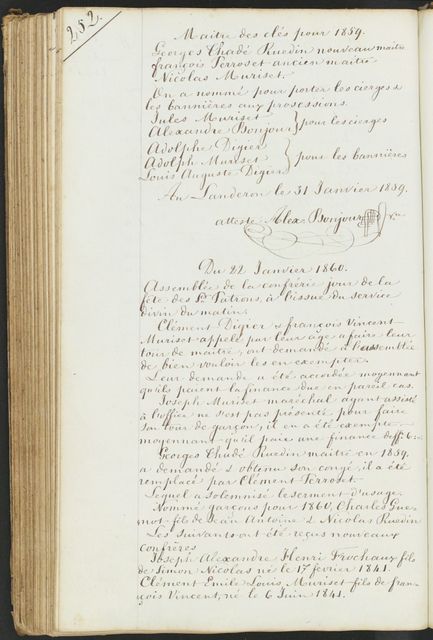 252.
Maitre des clés pour 1859.
Georges Chadé Ruedin nouveau maitre
françois Perroset ancien maitre
Nicolas Muriset
On a nommé pour porter les cierges &
les bannières aux processions.
Jules Muriset
Alexandre Bonjour } pour les cierges
Adolphe Digier
Adolph Muriset } pour les bannières
Louis Auguste Digier
Au Landeron le 31 Janvier 1859.
atteste Alex. Bonjour
Du 22 Janvier 1860.
Assemblée de la confrérie jour de la
fête des Sts Patrons, à l'issue du service
divin du matin.
Clément Digier & françois Vincent
Muriset appelé par leur âge a fairs leur
tour de maitre, ont demandé a l'assemblée
de bien vouloir les en exempter.
Leur demande a été accordée moyennant
qu'ils paient la finance due en pareil cas.
Joseph Muriset maréchal ayant assisté
à l'office ne s'est pas présenté pour faire
son tour de garçon, il en a été exempté
moyennant qu'il paie une finance de ff. 6:-
Georges Chadé Ruedin maitre en 1859.
a demandé & obtenu son congé, il a été
remplacé par Clément Perroset
Lequel a solemnisé le serment d'usage.
Nommé garçons pour 1860, Charles Gue-
not fils de Jean Antoine & Nicolas Ruedin
Les suivants ont été reçus nouveaux
Confrères
Joseph Alexandre Henri Frochaux fils
de Simon Nicolas né le 17 fevrier 1841.
Clément Emile Louis Muriset fils de fran-
çois Vincent, né le 6 Juin 1841.